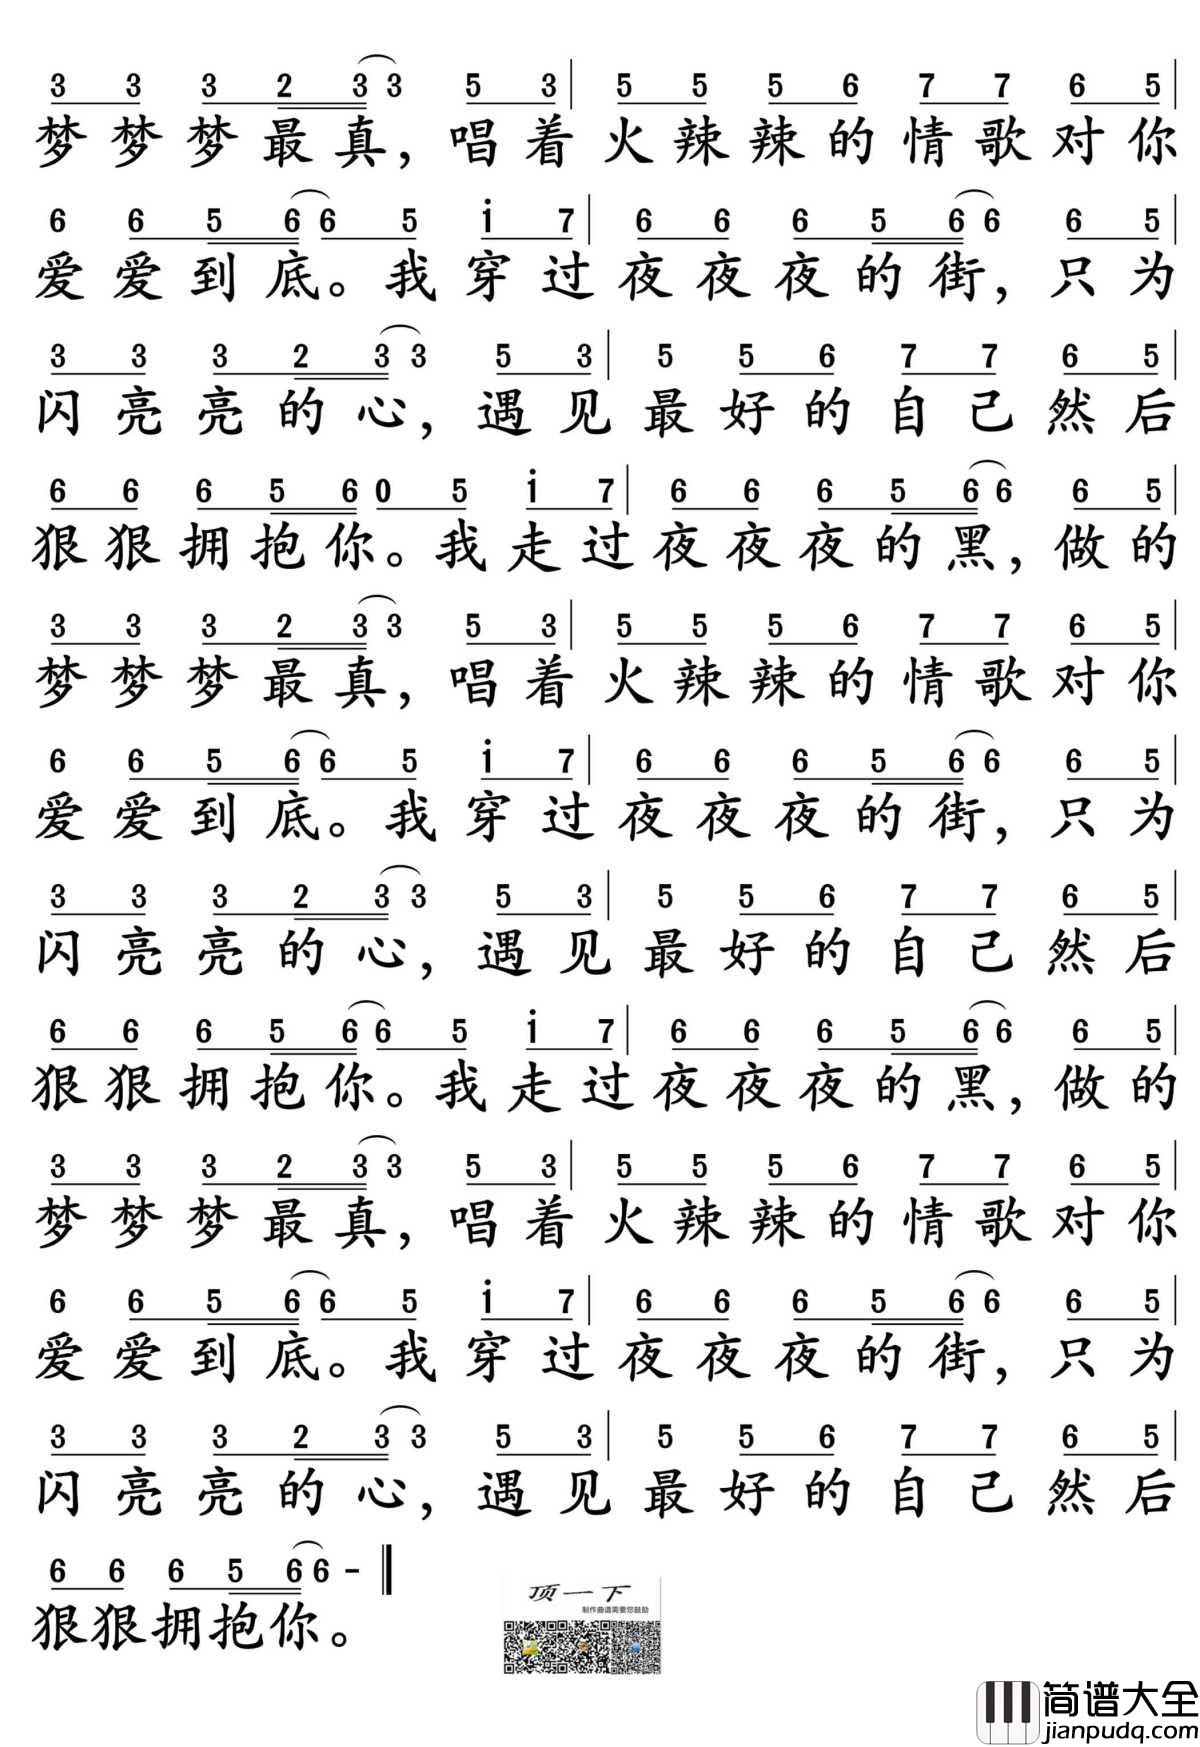 3 3 3 2 3 3 5 3 | 5 5 5 6 7 7 6 5 |
梦梦梦最真，唱着火辣辣的情歌对你
6 6 5 6 6 5 i 7 | 6 6 6 5 6 6 6 5 |
爱爱到底。我穿过夜夜夜的街，只为
3 3 3 2 3 3 5 3 | 5 5 6 7 7 6 5 |
闪亮亮的心，遇见最好的自己然后
6 6 6 5 6 0 5 i 7 | 6 6 6 5 6 6 6 5 |
狠狠拥抱你。我走过夜夜夜的黑，做的
3 3 3 2 3 3 5 3 | 5 5 5 6 7 7 6 5 |
梦梦梦最真，唱着火辣辣的情歌对你
6 6 5 6 6 5 i 7 | 6 6 6 5 6 6 6 5 |
爱爱到底。我穿过夜夜夜的街，只为
3 3 3 2 3 3 5 3 | 5 5 6 7 7 6 5 |
闪亮亮的心，遇见最好的自己然后
6 6 6 5 6 6 5 i 7 | 6 6 6 5 6 6 6 5 |
狠狠拥抱你。我走过夜夜夜的黑，做的
3 3 3 2 3 3 5 3 | 5 5 5 6 7 7 6 5 |
梦梦梦最真，唱着火辣辣的情歌对你
6 6 5 6 6 5 i 7 | 6 6 6 5 6 6 6 5 |
爱爱到底。我穿过夜夜夜的街，只为
3 3 3 2 3 3 5 3 | 5 5 6 7 7 6 5 |
闪亮亮的心，遇见最好的自己然后
6 6 6 5 6 6 - ‖
狠狠拥抱你。
顶一下
制作曲谱需要您鼓励
简谱大全
jianpudq.com